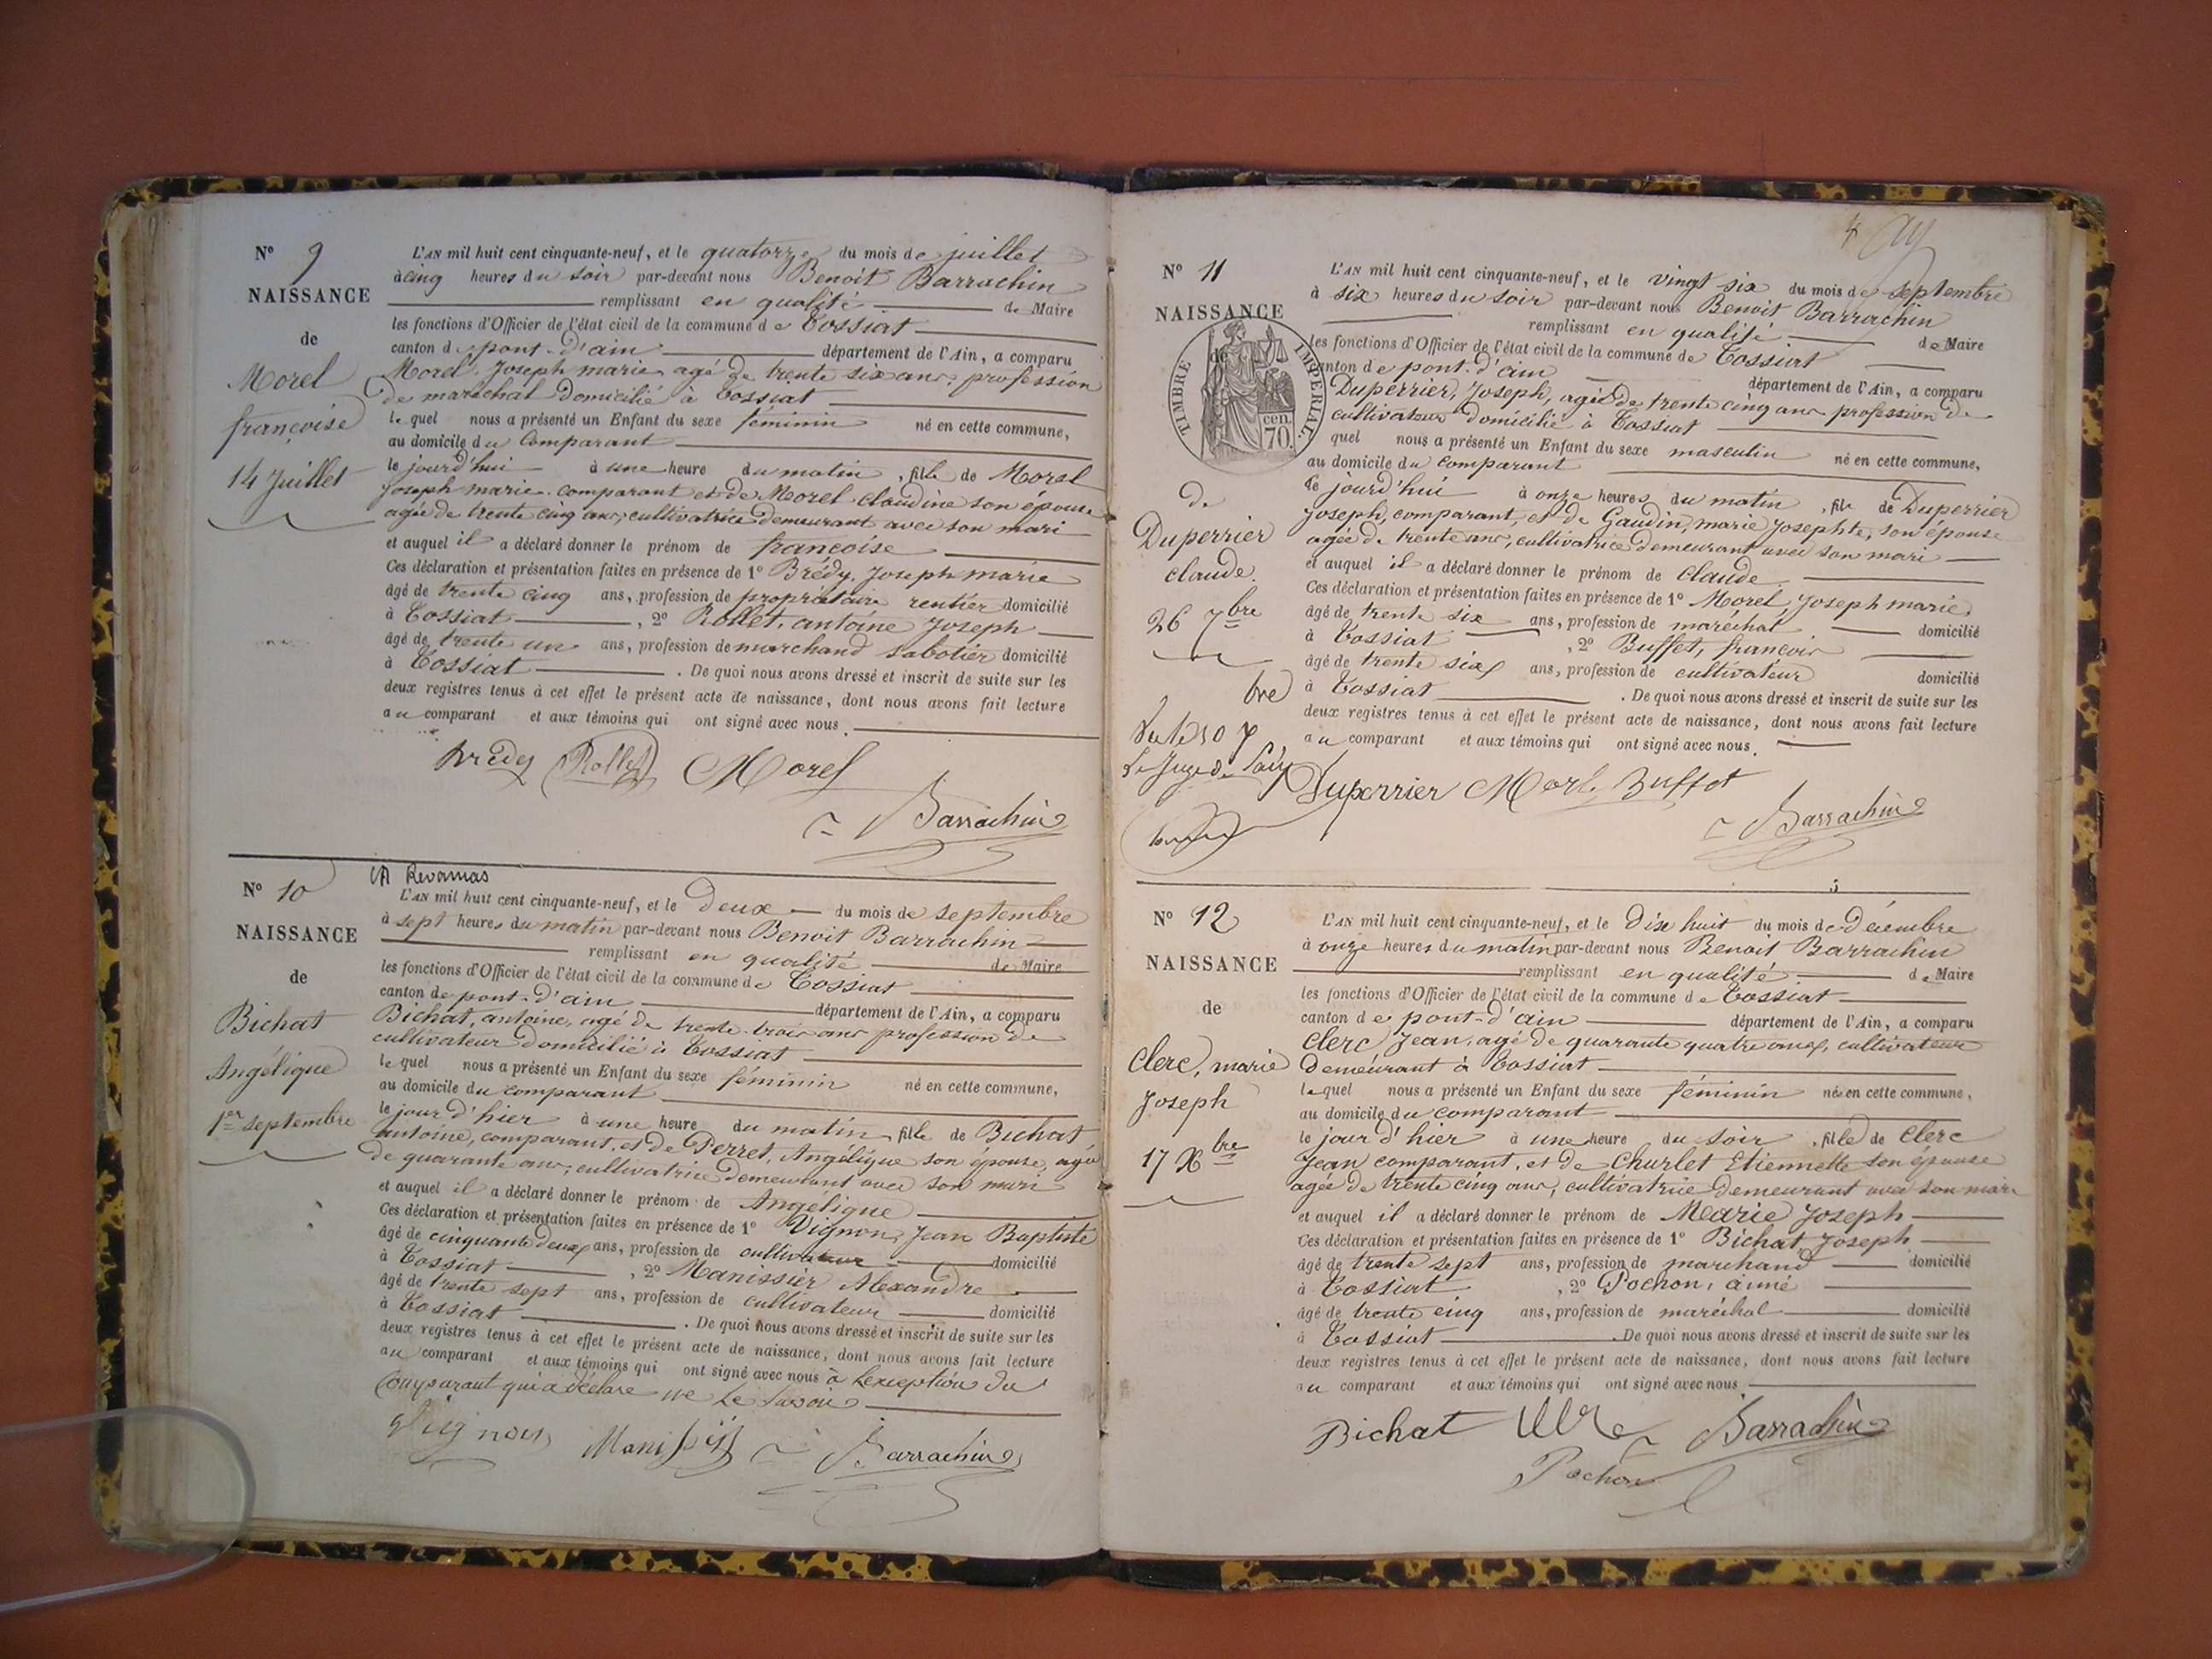 N° 9
NAISSANCE
de
Morel
françoise
14 Juillet
L'AN mil huit cent cinquante-neuf, et le quatorze du mois de juillet
à cinq heures du soir par-devant nous Benoit Barrachin
remplissant en qualité de Maire
les fonctions d'Officier de l'état civil de la commune de Tossiat
canton de pont-d'ain département de l'Ain, a comparu
Morel Joseph marie agé de trente six ans, profession
de maréchal domicilié à Tossiat
le quel nous a présenté un Enfant du sexe féminin né en cette commune,
au domicile du Comparant
le jourd'hui à une heure du matin, fille de Morel
Joseph marie comparant et de Morel claudine son épouse
agée de trente cinq ans, cultivatrice demeurant avec son mari
et auquel il a déclaré donner le prénom de françoise
Ces déclaration et présentation faites en présence de 1° Brédy, Joseph marie
âgé de trente cinq ans, profession de propriétaire rentier domicilié
à Tossiat, 2° Rollet, antoine Joseph
âgé de trente un ans, profession de marchand sabotier domicilié
à Tossiat. De quoi nous avons dressé et inscrit de suite sur les
deux registres tenus à cet effet le présent acte de naissance, dont nous avons fait lecture
au comparant et aux témoins qui ont signé avec nous.
Brédy Rollet Morel
Barrachin
N° 10
NAISSANCE
de
Bichat
Angélique
1er septembre
L'AN mil huit cent cinquante-neuf, et le Deux du mois de septembre
à sept heures du matin par-devant nous Benoit Barrachin
remplissant en qualité de Maire
les fonctions d'Officier de l'état civil de la commune de Tossiat
canton de pont-d'ain département de l'Ain, a comparu
Bichat, antoine, agé de trente trois ans profession de
cultivateur domicilié à Tossiat
le quel nous a présenté un Enfant du sexe féminin né en cette commune,
au domicile du comparant
le jour d'hier à une heure du matin, fille de Bichat
antoine, comparant, et de Perret, Angélique son épouse, agée
de quarante ans, cultivatrice demeurant avec son mari
et auquel il a déclaré donner le prénom de Angélique
Ces déclaration et présentation faites en présence de 1° Vignon, Jean Baptiste
âgé de cinquante deux ans, profession de cultivateur domicilié
à Tossiat, 2° Manissier Alexandre
âgé de trente sept ans, profession de cultivateur domicilié
à Tossiat. De quoi nous avons dressé et inscrit de suite sur les
deux registres tenus à cet effet le présent acte de naissance, dont nous avons fait lecture
au comparant et aux témoins qui ont signé avec nous à l'exception du
Comparant qui a déclaré ne le savoir
Vignon Manissier Barrachin
N° 11
NAISSANCE
TIMBRE IMPERIAL
70 cen.
de
Duperrier
claude
26 7bre
Vu le 30 7bre
Le Juge de Paix
L'AN mil huit cent cinquante-neuf, et le vingt six du mois de septembre
à six heures du soir par-devant nous Benoit Barrachin
remplissant en qualité de Maire
les fonctions d'Officier de l'état civil de la commune de Tossiat
canton de pont-d'ain département de l'Ain, a comparu
Duperrier, Joseph, agé de trente cinq ans profession de
cultivateur domicilié à Tossiat
quel nous a présenté un Enfant du sexe masculin né en cette commune,
au domicile du comparant
le jourd'hui à onze heures du matin, fils de Duperrier
Joseph, comparant, et de Gaudin, marie Josephte, son épouse
agée de trente ans, cultivatrice demeurant avec son mari
et auquel il a déclaré donner le prénom de claude.
Ces déclaration et présentation faites en présence de 1° Morel, Joseph marie
âgé de trente six ans, profession de maréchal domicilié
à Tossiat, 2° Buffet, françois
âgé de trente six ans, profession de cultivateur domicilié
à Tossiat. De quoi nous avons dressé et inscrit de suite sur les
deux registres tenus à cet effet le présent acte de naissance, dont nous avons fait lecture
au comparant et aux témoins qui ont signé avec nous.
Duperrier Morel Buffet
Barrachin
N° 12
NAISSANCE
de
Clerc, marie
Joseph
17 Xbre
L'AN mil huit cent cinquante-neuf, et le Dix huit du mois de Décembre
à onze heures du matin par-devant nous Benoit Barrachin
remplissant en qualité de Maire
les fonctions d'Officier de l'état civil de la commune de Tossiat
canton de pont-d'ain département de l'Ain, a comparu
Clerc Jean, agé de quarante quatre ans, cultivateur
demeurant à Tossiat
le quel nous a présenté un Enfant du sexe féminin née en cette commune,
au domicile du comparant
le jour d'hier à une heure du soir, fille de Clerc
Jean comparant, et de Churlet Etiennette son épouse
agée de trente cinq ans, cultivatrice demeurant avec son mari
et auquel il a déclaré donner le prénom de Marie Joseph
Ces déclaration et présentation faites en présence de 1° Bichat Joseph
âgé de trente sept ans, profession de marchand domicilié
à Tossiat, 2° Pochon, aimé
âgé de trente cinq ans, profession de maréchal domicilié
à Tossiat. De quoi nous avons dressé et inscrit de suite sur les
deux registres tenus à cet effet le présent acte de naissance, dont nous avons fait lecture
au comparant et aux témoins qui ont signé avec nous
Bichat Barrachin
Pochon